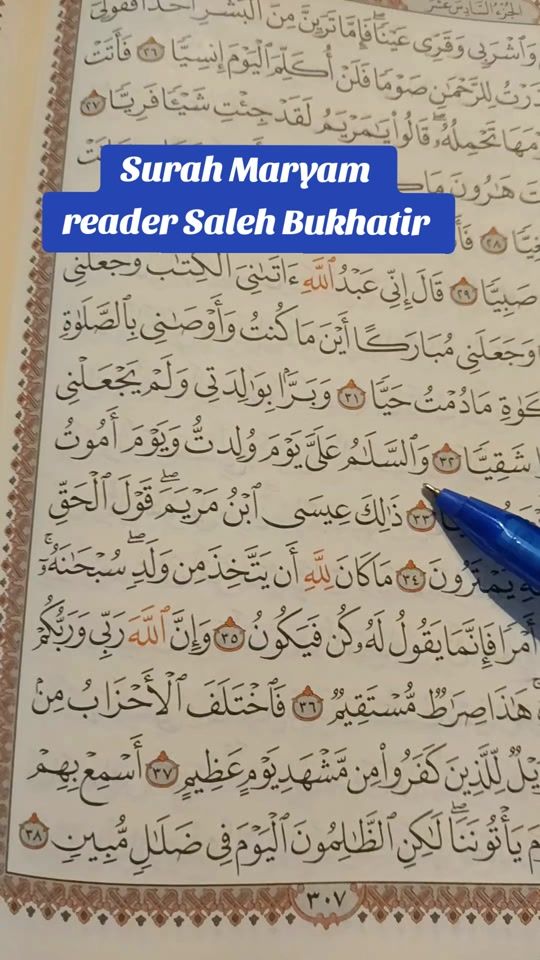 الجزء السادس عشر
وَٱشْرَبِى وَقَرِّى عَيْنًا ۖ فَإِمَّا تَرَيِنَّ مِنَ ٱلْبَشَرِ أَحَدًا فَقُولِىٓ
ذَرْتُ لِلرَّحْمَٰنِ صَوْمًا فَلَنْ أُكَلِّمَ ٱلْيَوْمَ إِنسِيًّا ٢٦ فَأَتَتْ
وْمَهَا تَحْمِلُهُۥ ۖ قَالُوا۟ يَٰمَرْيَمُ لَقَدْ جِئْتِ شَيْـًٔا فَرِيًّا ٢٧
هَٰرُونَ
Surah Maryam
reader Saleh Bukhatir
٢٨
صَبِيًّا ٢٩ قَالَ إِنِّى عَبْدُ ٱللَّهِ ءَاتَىٰنِىَ ٱلْكِتَٰبَ وَجَعَلَنِى
وَجَعَلَنِى مُبَارَكًا أَيْنَ مَا كُنتُ وَأَوْصَٰنِى بِٱلصَّلَوٰةِ
كَوٰةِ مَا دُمْتُ حَيًّا ٣١ وَبَرًّۢا بِوَٰلِدَتِى وَلَمْ يَجْعَلْنِى
شَقِيًّا ٣٢ وَٱلسَّلَٰمُ عَلَىَّ يَوْمَ وُلِدتُّ وَيَوْمَ أَمُوتُ
٣٣ ذَٰلِكَ عِيسَى ٱبْنُ مَرْيَمَ ۖ قَوْلَ ٱلْحَقِّ
يَمْتَرُونَ ٣٤ مَا كَانَ لِلَّهِ أَن يَتَّخِذَ مِن وَلَدٍ ۖ سُبْحَٰنَهُۥٓ ۚ
أَمْرًا فَإِنَّمَا يَقُولُ لَهُۥ كُن فَيَكُونُ ٣٥ وَإِنَّ ٱللَّهَ رَبِّى وَرَبُّكُمْ
هَٰذَا صِرَٰطٌ مُّسْتَقِيمٌ ٣٦ فَٱخْتَلَفَ ٱلْأَحْزَابُ مِنۢ
يْلٌ لِّلَّذِينَ كَفَرُوا۟ مِن مَّشْهَدِ يَوْمٍ عَظِيمٍ ٣٧ أَسْمِعْ بِهِمْ
يَأْتُونَنَا ۖ لَٰكِنِ ٱلظَّٰلِمُونَ ٱلْيَوْمَ فِى ضَلَٰلٍ مُّبِينٍ ٣٨
٣٠٧